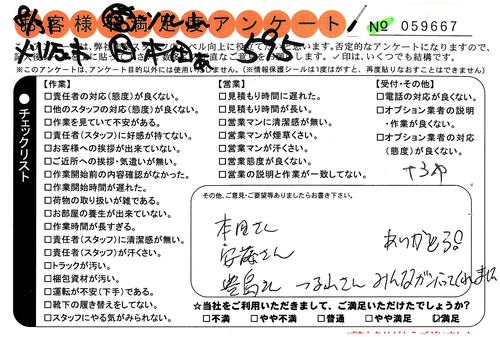 お客様満足度アンケート
No 059667
※このアンケートは、アンケート目的以外には使用いたしません。(※情報保護シールは1度はがすと、再度貼りなおすことはできません)
チェックリスト
【作業】
□責任者の対応(態度)が良くない。
□他のスタッフの対応(態度)が良くない。
□作業を見ていて不安がある。
□責任者(スタッフ)に好感が持てない。
□お客様への挨拶が出来ていない。
□ご近所への挨拶・気遣いが無い。
□作業開始前の内容確認がなかった。
□作業開始時間が遅れた。
□荷物の取り扱いが雑である。
□お部屋の養生が出来ていない。
□作業時間が長すぎる。
□責任者(スタッフ)に清潔感が無い。
□責任者(スタッフ)が汗くさい。
□トラックが汚い。
□梱包資材が汚い。
□運転が不安(下手)である。
□靴下の履き替えをしてない。
□スタッフにやる気がみられない。
【営業】
□見積もり時間に遅れた。
□見積もり時間が長い。
□営業マンに清潔感が無い。
□営業マンが煙草くさい。
□営業マンが汗くさい。
□営業態度が良くない。
□営業の説明と作業が一致してない。
【受付・その他】
□電話の対応が良くない。
□オプション業者の説明
・作業が良くない。
□オプション業者の対応
(態度)が良くない。
その他、ご意見・ご要望等ありましたらお書き下さい。
本田さん
安藤さん
ありがとう!
豊島さん
みんなガンバってくれました
☆当社をご利用いただきまして、ご満足いただけたでしょうか?
□不満 □やや不満 □普通 □やや満足 ☑満足